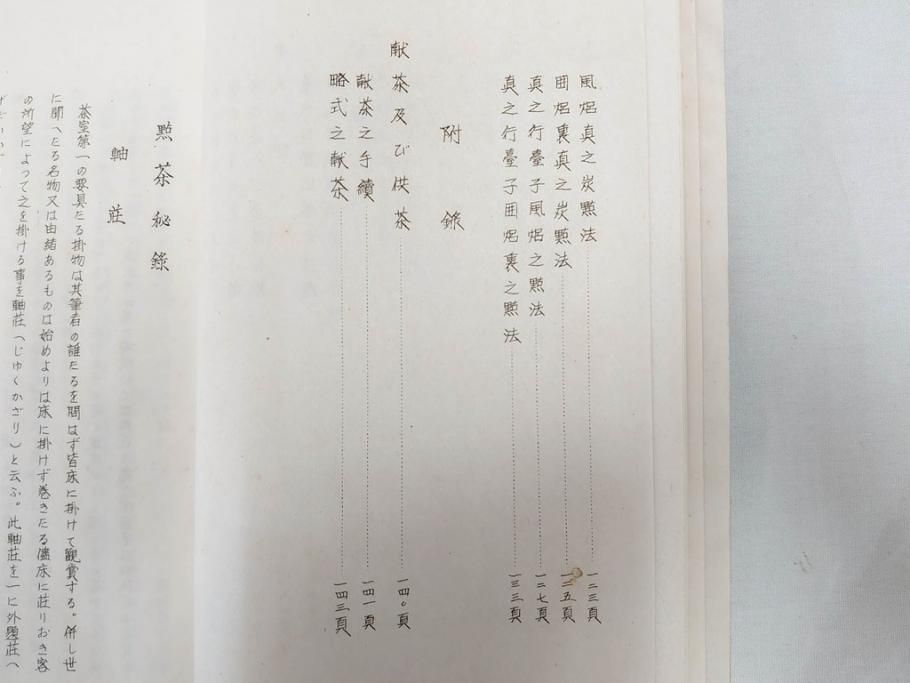 風炉真之炭㸃法……一二三頁
囲炉裏真之炭㸃法……一二五頁
真之行臺子風炉之㸃法……一二七頁
真之行臺子囲炉裏之㸃法……一三三頁
附錄
献茶及び供茶……一四〇頁
献茶之手續……一四一頁
略式之献茶……一四三頁
㸃茶秘錄
軸荘
茶室第一の要具たる掛物は其筆者の誰たるを問はず皆床に掛けて観賞する。併し世
に聞へたる名物又は由緒あるものは始めよりは床に掛けず巻きたる儘床に荘りおき客
の所望によって之を掛ける事を軸荘（じゆくかざり）と云ふ。此軸荘を一に外題荘へ